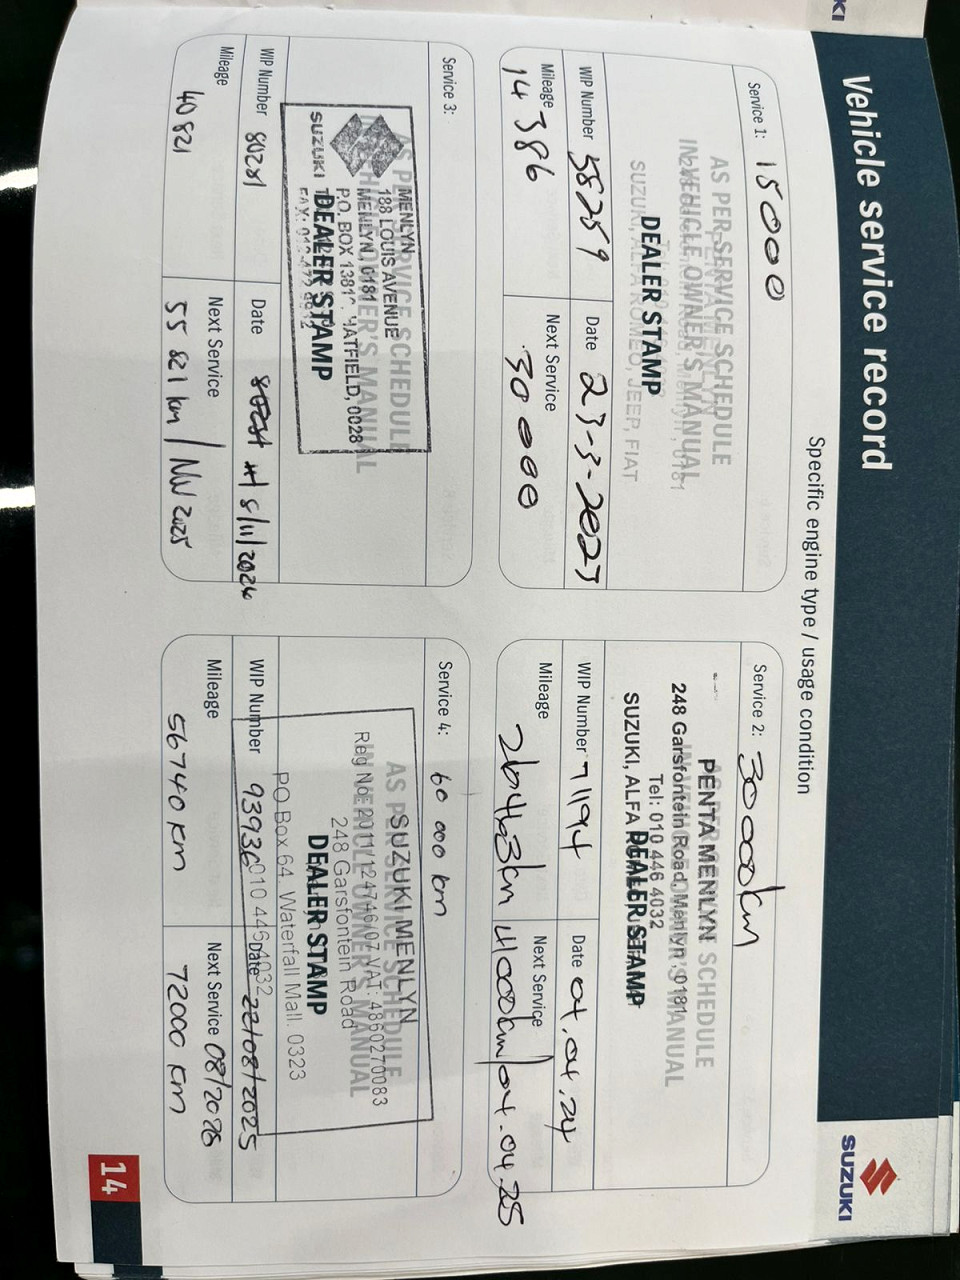 Vehicle service record
SUZUKI
Specific engine type / usage condition
Service 1: 15000
AS PER SERVICE SCHEDULE
IN VEHICLE OWNER'S MANUAL
DEALER STAMP
SUZUKI, ALFA ROMEO, JEEP, FIAT
WIP Number 58259
Date 23-3-2023
Mileage 14386
Next Service 30000
Service 2: 30000km
AS PER SERVICE SCHEDULE
IN VEHICLE OWNER'S MANUAL
PENTA MENLYN
248 Garsfontein Road, Menlyn, 0181
Tel: 010 446 4032
SUZUKI, ALFA
DEALER STAMP
WIP Number 71194
Date 04.04.24
Mileage 26463km
Next Service 04.04.25
Service 3:
AS PER SERVICE SCHEDULE
IN VEHICLE OWNER'S MANUAL
MENLYN
188 LOUIS AVENUE
MENLYN, 0181
P.O. BOX HATFIELD, 0028
SUZUKI
DEALER STAMP
WIP Number 80281
Date 8/11/2024
Mileage 40821
Next Service 55 821 km / NOV 2025
Service 4: 60 000 km
AS PER SERVICE SCHEDULE
IN VEHICLE OWNER'S MANUAL
SUZUKI MENLYN
Reg No: 2011/124746/07 VAT: 4860270083
248 Garsfontein Road
DEALER STAMP
PO Box 64, Waterfall Mall. 0323
010 446 4032
WIP Number 93936
Date 22/08/2025
Mileage 56740 km
Next Service 08/2026
72000 km
14